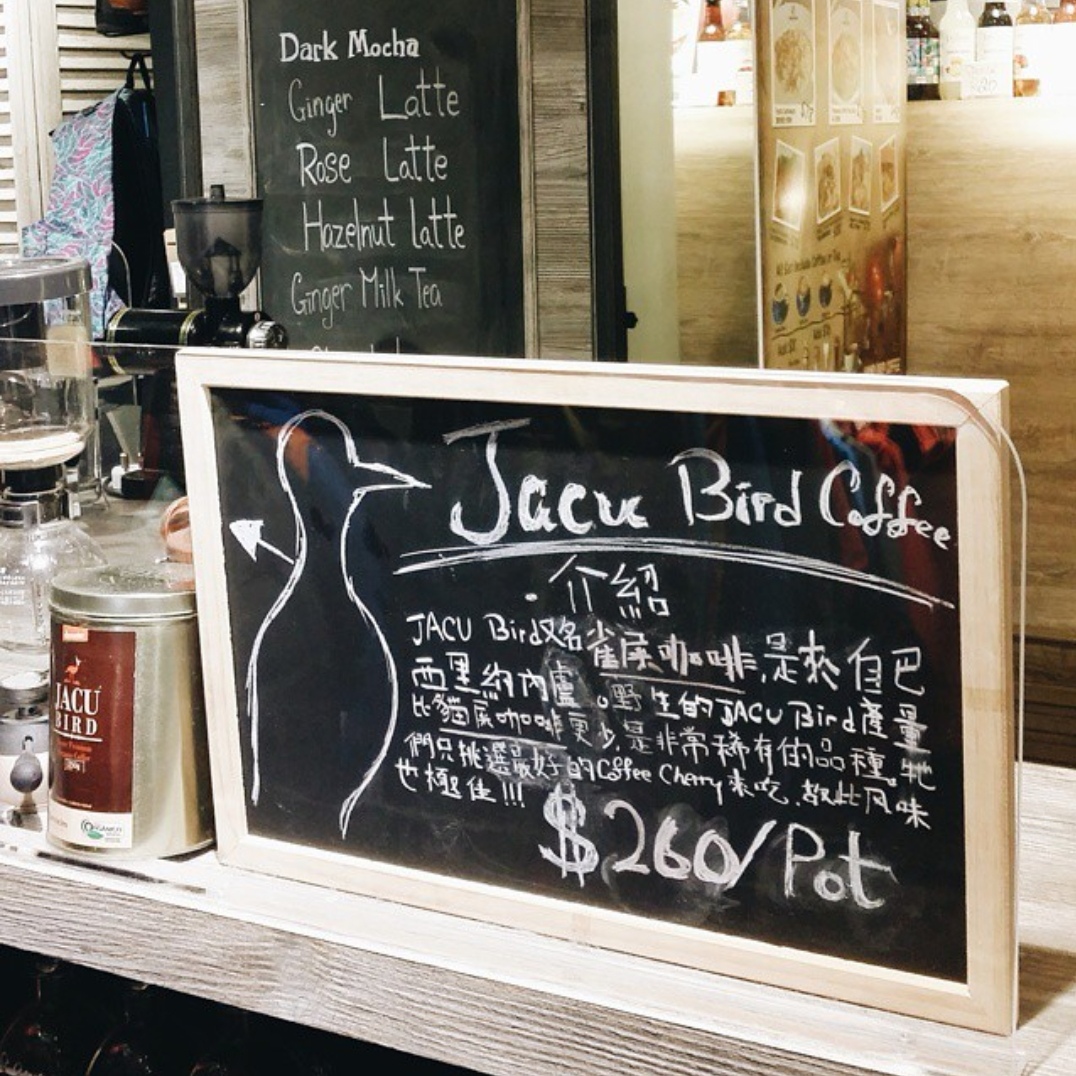 Dark Mocha
Ginger Latte
Rose Latte
Hazelnut Latte
Ginger Milk Tea
Jacu Bird Coffee
·介紹
JACU Bird又名雀屎咖啡,是來自巴
西里約內盧。野生的JACU Bird產量
比貓屎咖啡更少,是非常稀有的品種。牠
們只挑選最好的Coffee Cherry來吃,故此风味
也極佳!!!
$260/Pot
JACU
BIRD